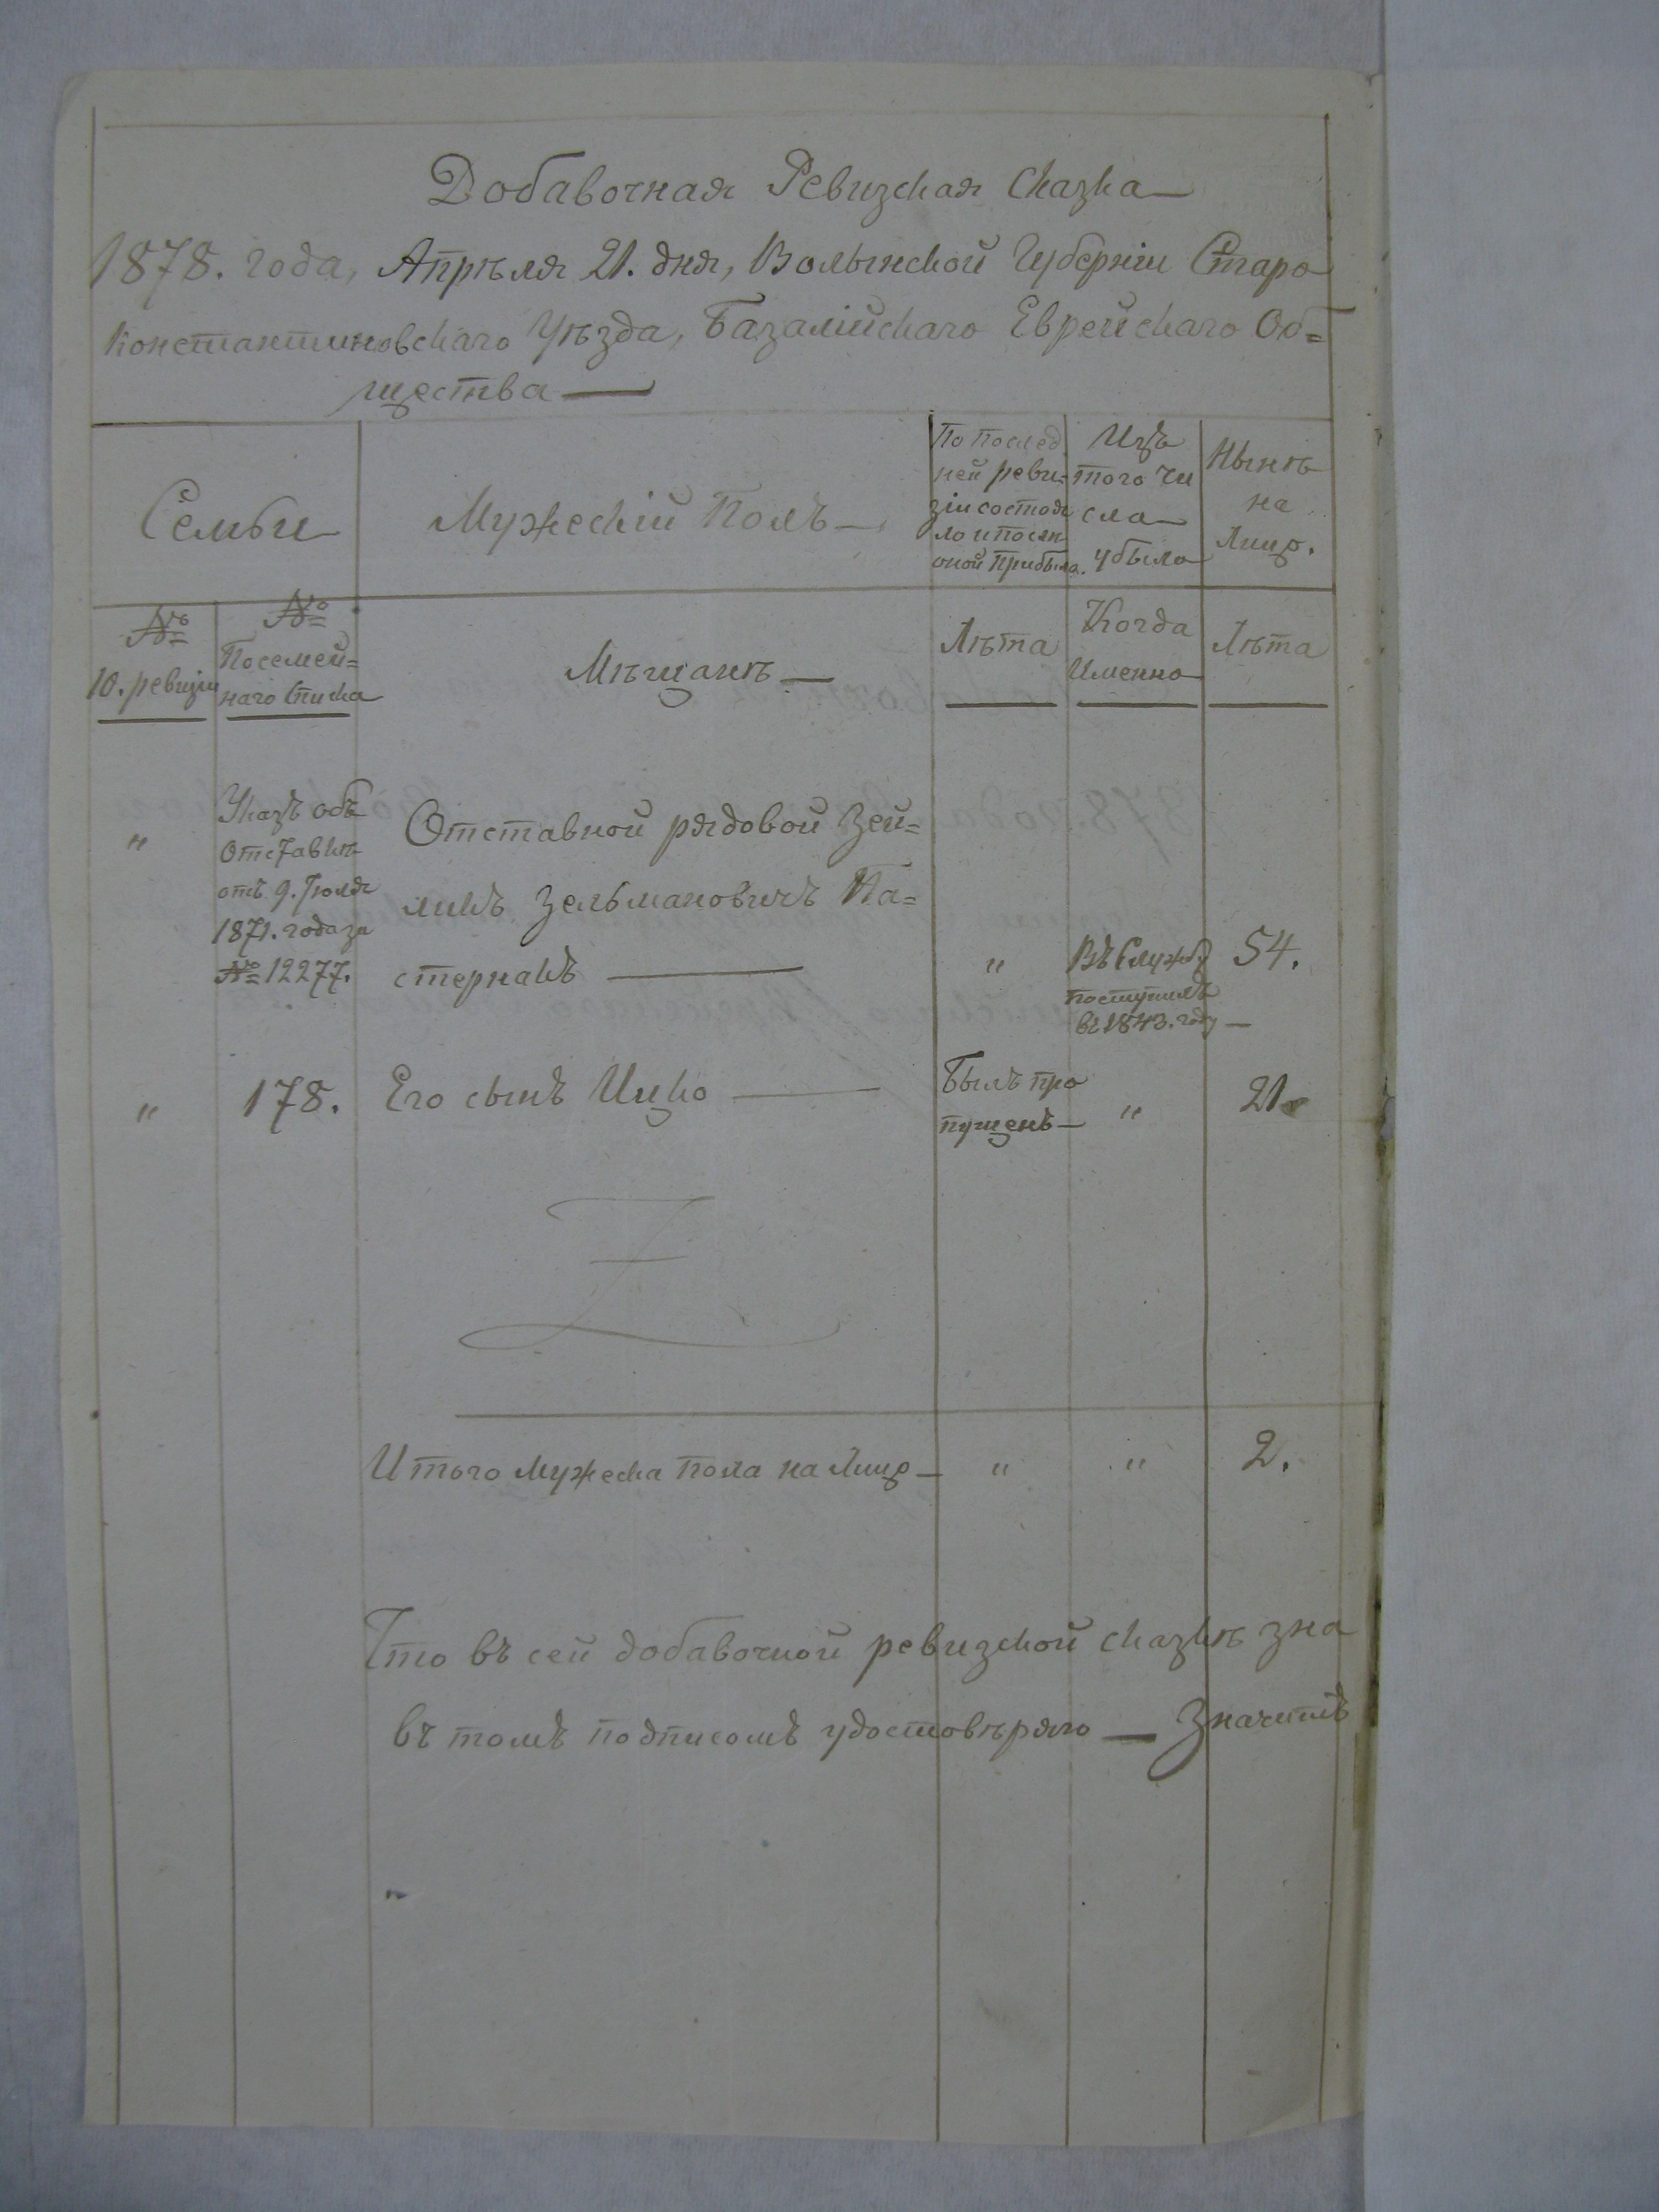 Добавочная Ревизская Сказка
1878. года, Апрѣля 21. дня, Волынской Губерніи Старо
Константиновскаго Уѣзда, Базалійскаго Еврейскаго Об=
щества
Семьи
Мужескій Полъ
По послед
ней реви=
зіи состоя
ло и послѣ
оной прибыло.
Изъ
того чи
сла
убыло
Нынѣ
на
Лицо.
№
10. ревизіи
№
Посемей=
наго Списка
Мѣщане
Лѣта
Когда
Именно
Лѣта
"
Указъ объ
Отставкѣ
отъ 9. Іюля
1871. года за
№ 12277.
Отставной рядовой Зей=
ликъ Зельмановичъ Па=
стернакъ
"
Въ Службу
поступилъ
въ 1843. году
54.
"
178.
Его сынъ Ицко
Былъ про
пущенъ
"
21.
Итого мужеска пола на Лицо
"
"
2.
Что въ сей добавочной ревизской сказкѣ зна
въ томъ подписомъ удостовѣряю — Значитъ